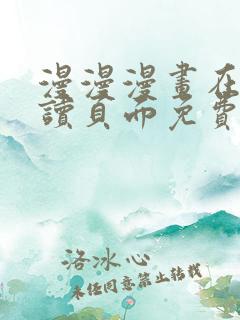 漫漫漫畫在
讀頁面免費
洛冰心
未经同意禁止转载